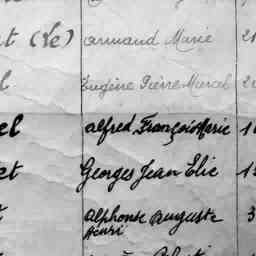 t (Le) Armand Marie 21
l Eugène Pierre Marcel 2
el Alfred François Marie 1
et Georges Jean Elie 1
t Alphonse Auguste 3
Henri